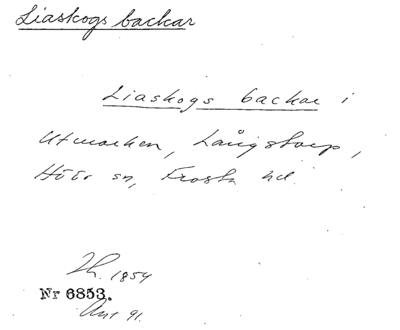 Liaskogs backar
Liaskogs backar i
Utmarken, Långstorp,
Höör sn, Frosta hd.
1854
Nr 6853.
91.